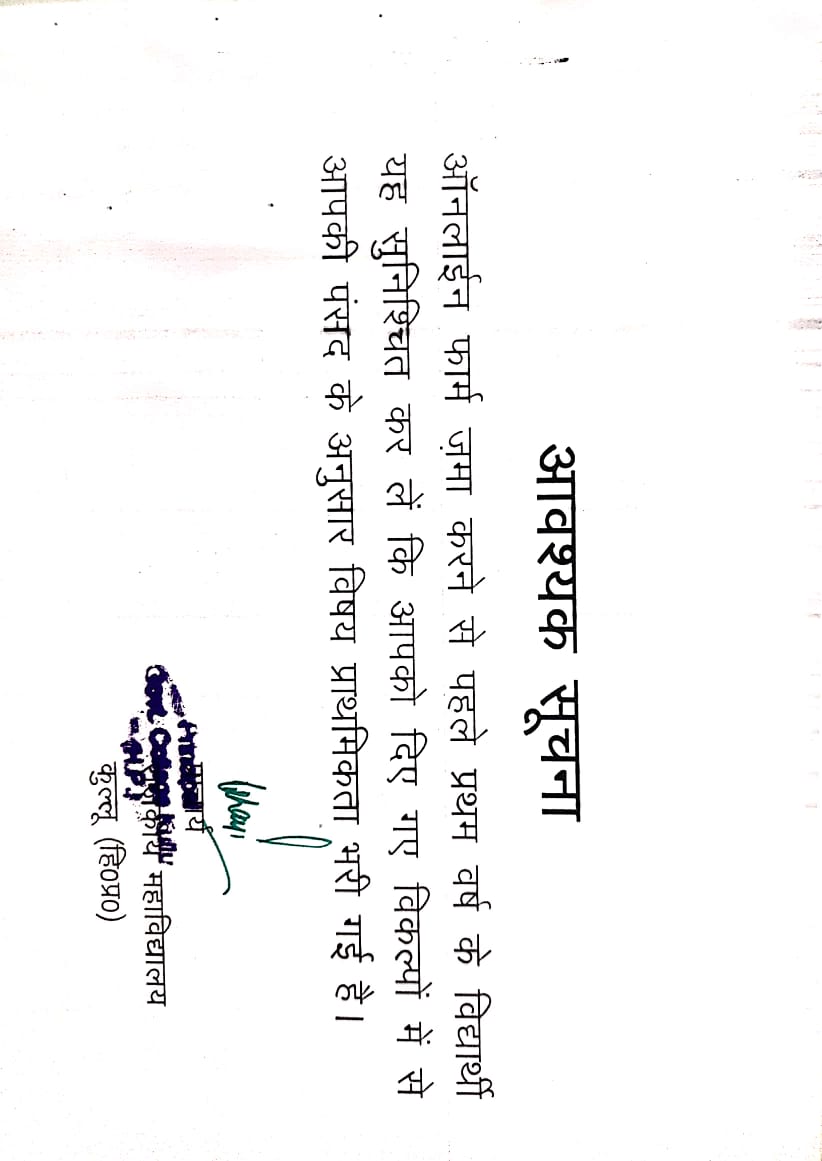 आवश्यक सूचना
ऑनलाईन फार्म ज़मा करने से पहले प्रथम वर्ष के विद्यार्थी
यह सुनिश्चित कर लें कि आपको दिए गए विकल्पों में से
आपकी पंसद के अनुसार विषय प्राथमिकता भरी गई है।
महाविद्यालय
कुल्लू (हि०प्र०)